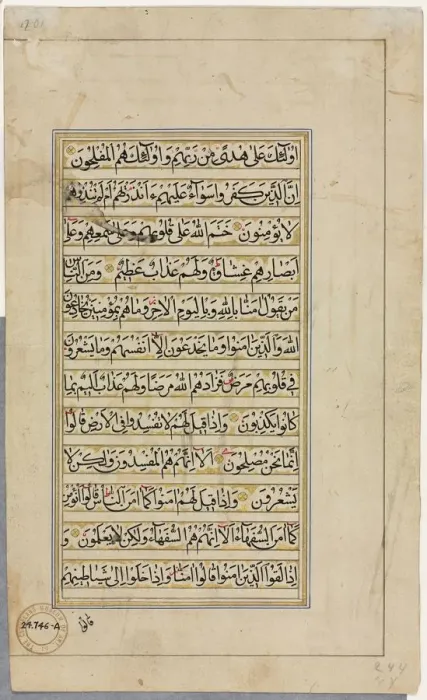 اُولٰٓئِكَ عَلٰى هُدًى مِنْ رَبِّهِمْ وَاُولٰٓئِكَ هُمُ الْمُفْلِحُونَ
اِنَّ الَّذِينَ كَفَرُوا سَوَاءٌ عَلَيْهِمْ ءَاَنْذَرْتَهُمْ اَمْ لَمْ تُنْذِرْهُمْ
لَا يُؤْمِنُونَ خَتَمَ اللّٰهُ عَلٰى قُلُوبِهِمْ وَعَلٰى سَمْعِهِمْ وَعَلٰى
اَبْصَارِهِمْ غِشَاوَةٌ وَلَهُمْ عَذَابٌ عَظِيمٌ وَمِنَ النَّاسِ
مَنْ يَقُولُ اٰمَنَّا بِاللّٰهِ وَبِالْيَوْمِ الْاٰخِرِ وَمَا هُمْ بِمُؤْمِنِينَ يُخَادِعُونَ
اللّٰهَ وَالَّذِينَ اٰمَنُوا وَمَا يَخْدَعُونَ اِلَّا اَنْفُسَهُمْ وَمَا يَشْعُرُونَ
فِي قُلُوبِهِمْ مَرَضٌ فَزَادَهُمُ اللّٰهُ مَرَضًا وَلَهُمْ عَذَابٌ اَلِيمٌ بِمَا
كَانُوا يَكْذِبُونَ وَاِذَا قِيلَ لَهُمْ لَا تُفْسِدُوا فِي الْاَرْضِ قَالُوا
اِنَّمَا نَحْنُ مُصْلِحُونَ اَلَا اِنَّهُمْ هُمُ الْمُفْسِدُونَ وَلٰكِنْ لَا
يَشْعُرُونَ وَاِذَا قِيلَ لَهُمْ اٰمِنُوا كَمَا اٰمَنَ النَّاسُ قَالُوا اَنُؤْمِنُ
كَمَا اٰمَنَ السُّفَهَاءُ اَلَا اِنَّهُمْ هُمُ السُّفَهَاءُ وَلٰكِنْ لَا يَعْلَمُونَ وَ
اِذَا لَقُوا الَّذِينَ اٰمَنُوا قَالُوا اٰمَنَّا وَاِذَا خَلَوْا اِلٰى شَيَاطِينِهِمْ
قالوا
24.746-A